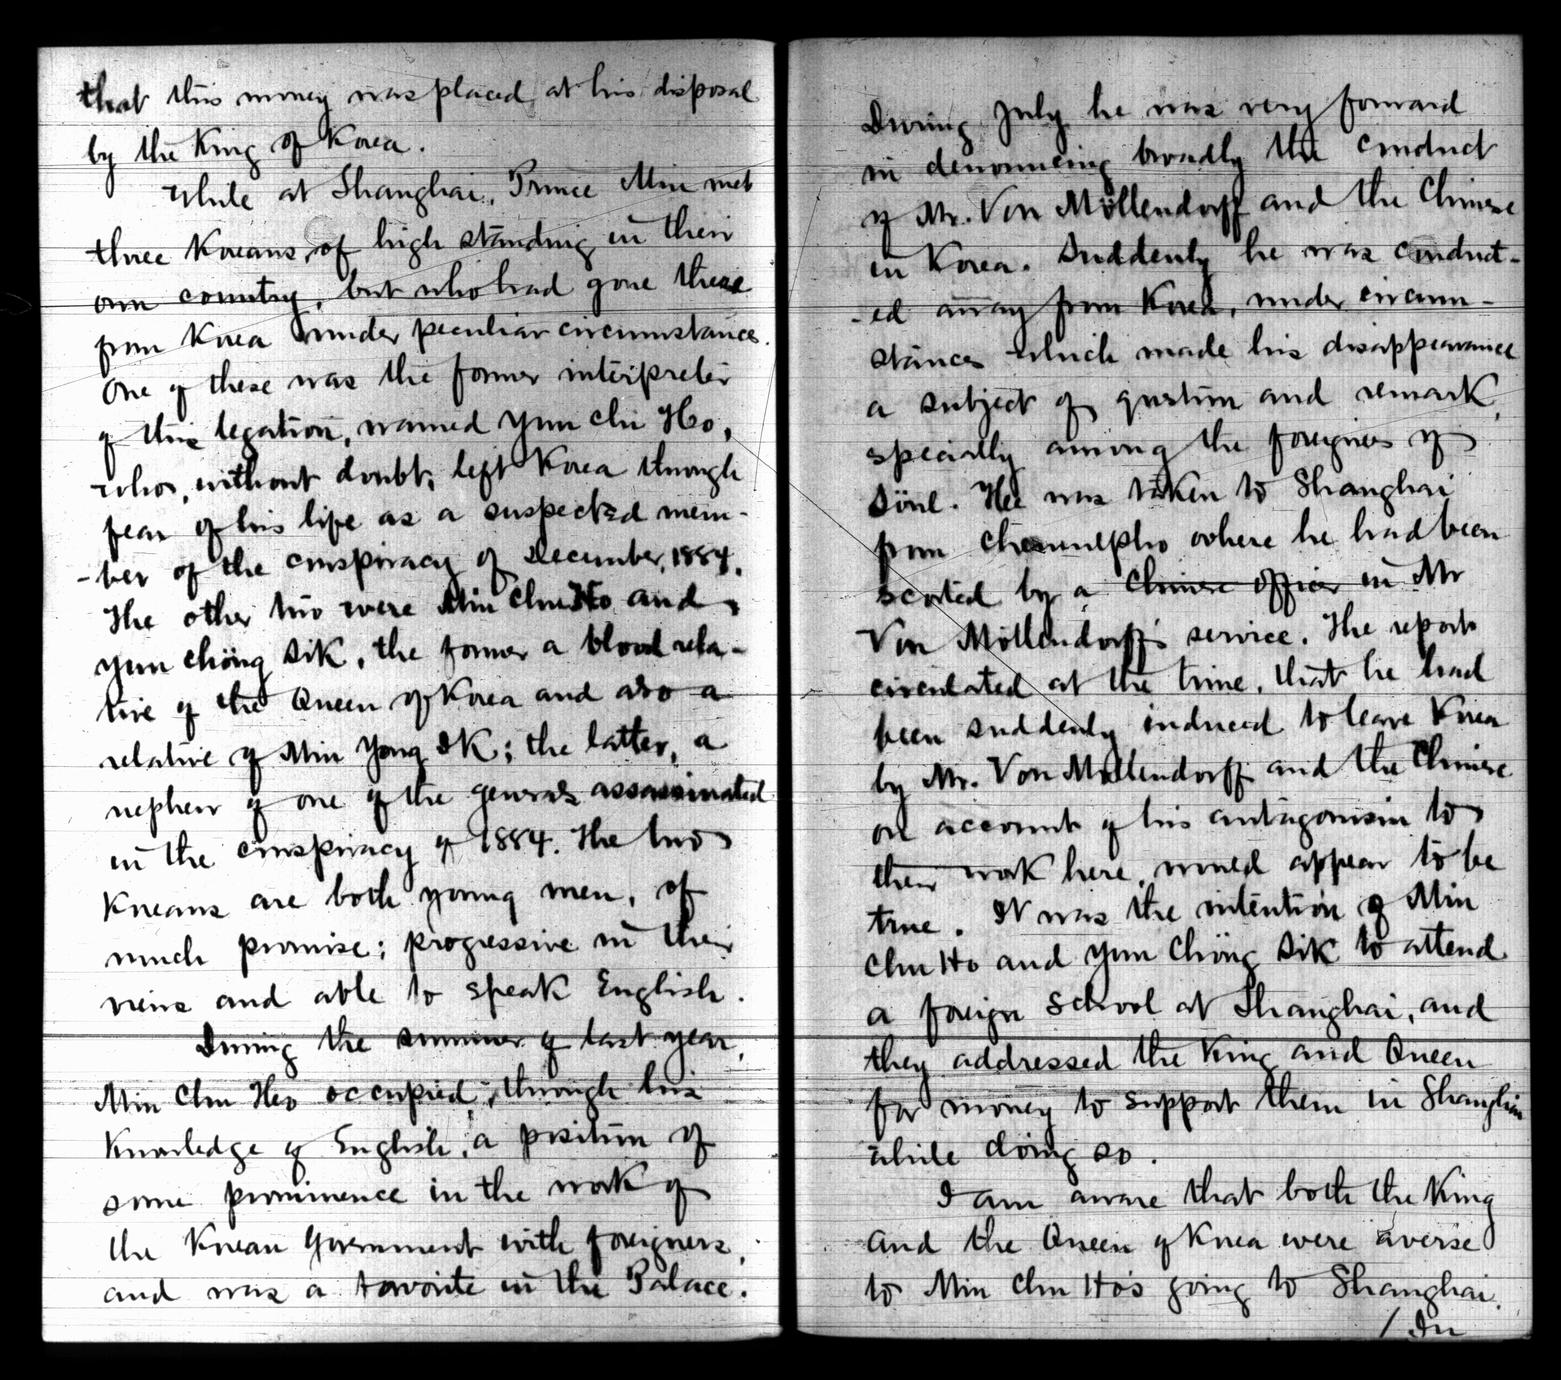 that this money was placed at his disposal
by the King of Korea.
While at Shanghai, Prince Min met
three Koreans, of high standing in their
own country, but who had gone there
from Korea under peculiar circumstances.
One of these was the former interpreter
of this legation, named Yun Chi Ho,
who, without doubt, left Korea through
fear of his life as a suspected mem-
-ber of the conspiracy of December, 1884.
The other two were Min Chu Ho and
Yun Chöng Sik, the former a blood rela-
tive of the Queen of Korea and also a
relative of Min Yong Ik; the latter, a
nephew of one of the generals assassinated
in the conspiracy of 1884. The two
Koreans are both young men, of
much promise; progressive in their
views and able to speak English.
During the summer of last year,
Min Chu Ho occupied, through his
Knowledge of English, a position of
some prominence in the work of
the Korean Government with foreigners,
and was a favorite in the Palace.
During July he was very forward
in denouncing broadly the conduct
of Mr. Von Möllendorff and the Chinese
in Korea. Suddenly he was conduct-
-ed away from Korea, under circum-
stances which made his disappearance
a subject of question and remark,
specially among the foreigners of
Söul. He was taken to Shanghai
from Chemulpho where he had been
scorted by a Chinese officer in Mr
Von Möllendorff's service. The report
circulated at the time, that he had
been suddenly induced to leave Korea
by Mr. Von Möllendorff and the Chinese
on account of his antagonism to
their work here, would appear to be
true. It was the intention of Min
Chu Ho and Yun Chöng Sik to attend
a foreign school at Shanghai, and
they addressed the King and Queen
for money to support them in Shanghai
while doing so.
I am aware that both the King
and the Queen of Korea were averse
to Min Chu Ho's going to Shanghai.
/ In